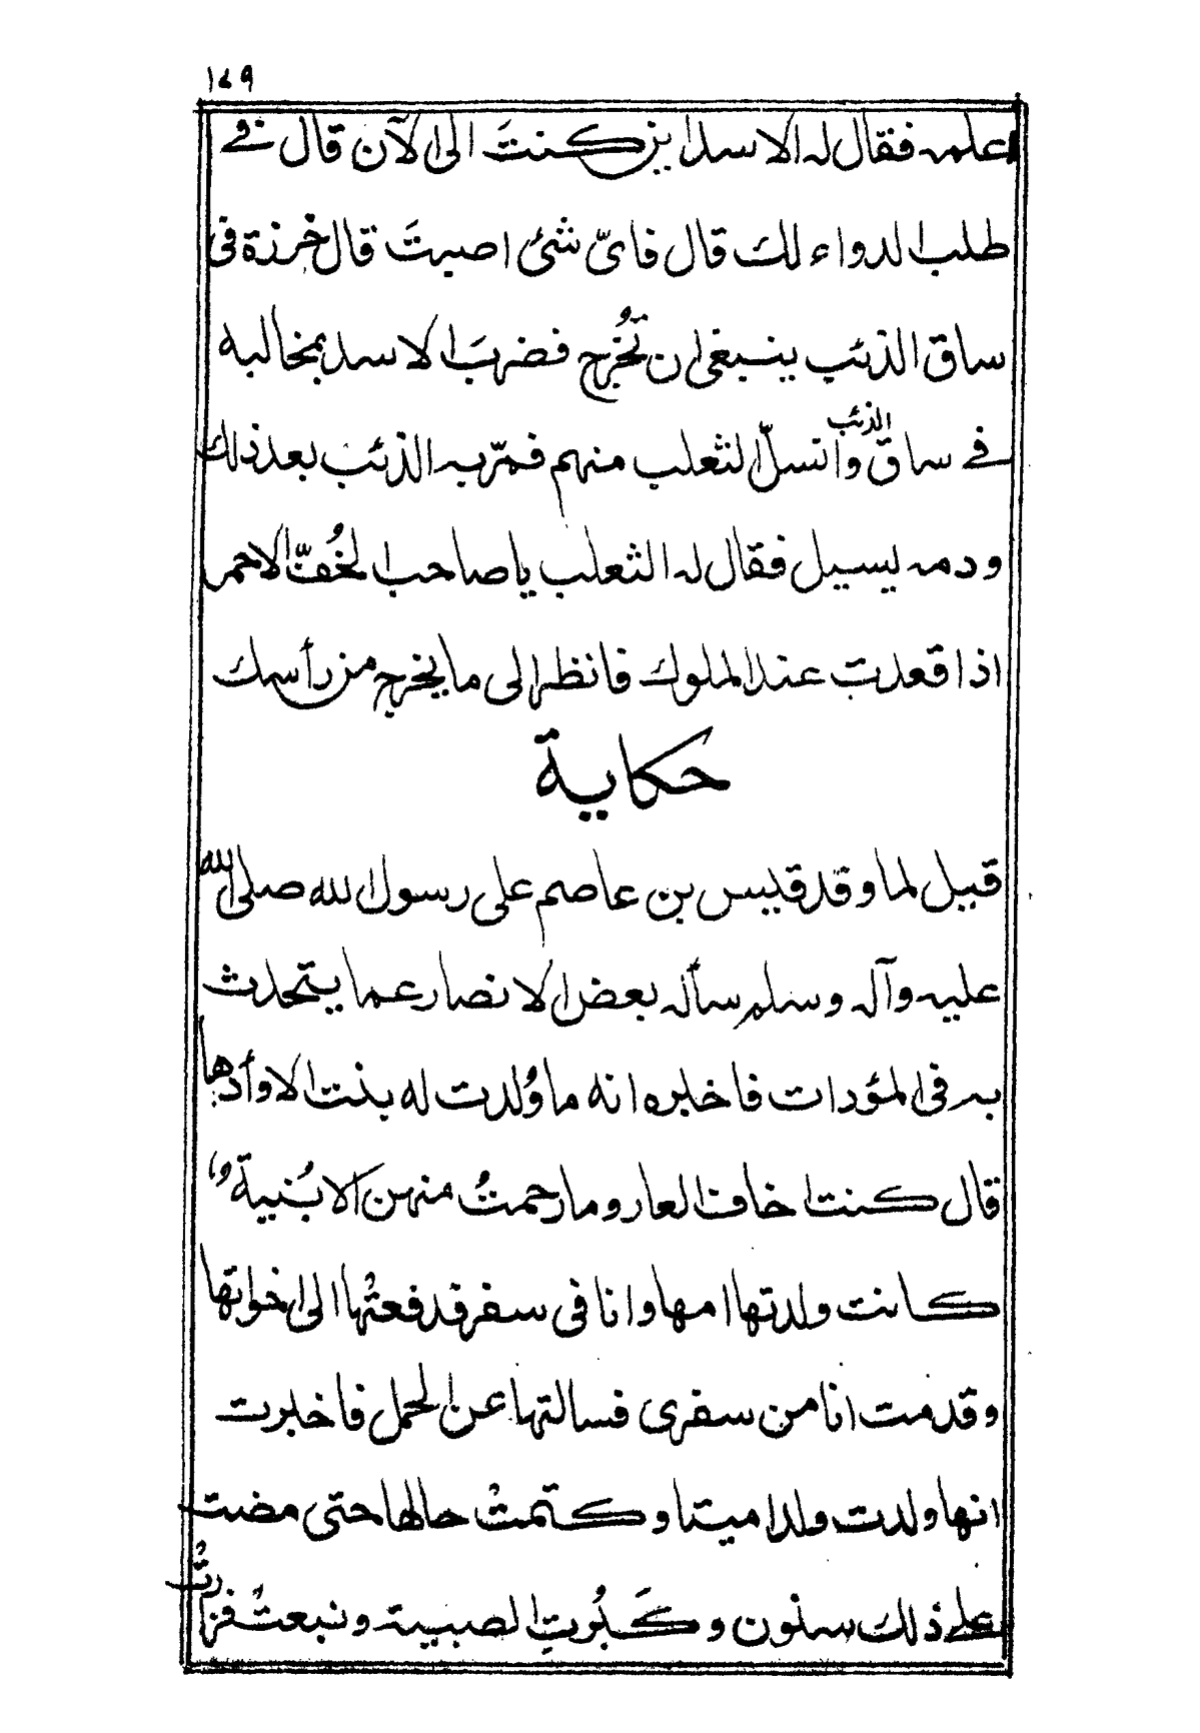 ١٤٩
اعلمه فقال له الاسد اين كنتَ الى الآن قال في
طلب الدواء لك قال فاىّ شئ اصبتَ قال خرزة فى
ساق الذئب ينبغى ان تُخرج فضربَ الاسد بمخالبه
في ساق الذئب وانسلّ الثعلب منهم فمرّ به الذئب بعد ذلك
ودمه يسيل فقال له الثعلب يا صاحب الخُفّ الاحمر
اذا قعدت عند الملوك فانظر الى ما يخرج من رأسك
حكاية
قيل لما وفد قيس بن عاصم على رسول الله صلى الله
عليه وآله وسلم سأله بعض الانصار عما يتحدث
به فى المؤدات فاخبره انه ما وُلدت له بنت الا وأدها
قال كنت اخاف العار وما رحمتُ منهن الا بُنية
كانت ولدتها امها وانا فى سفر فدفعتْها الى اخواتها
وقدمت انا من سفرى فسالتها عن الحمل فاخبرت
انها ولدت ولدا ميتا وكتمتْ حالها حتى مضت
على ذلك سنون وكَبُرتِ الصبية ونبعتْ فزارتْ